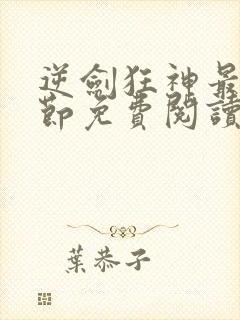 逆劍狂神最
節免費閱讀
葉恭子